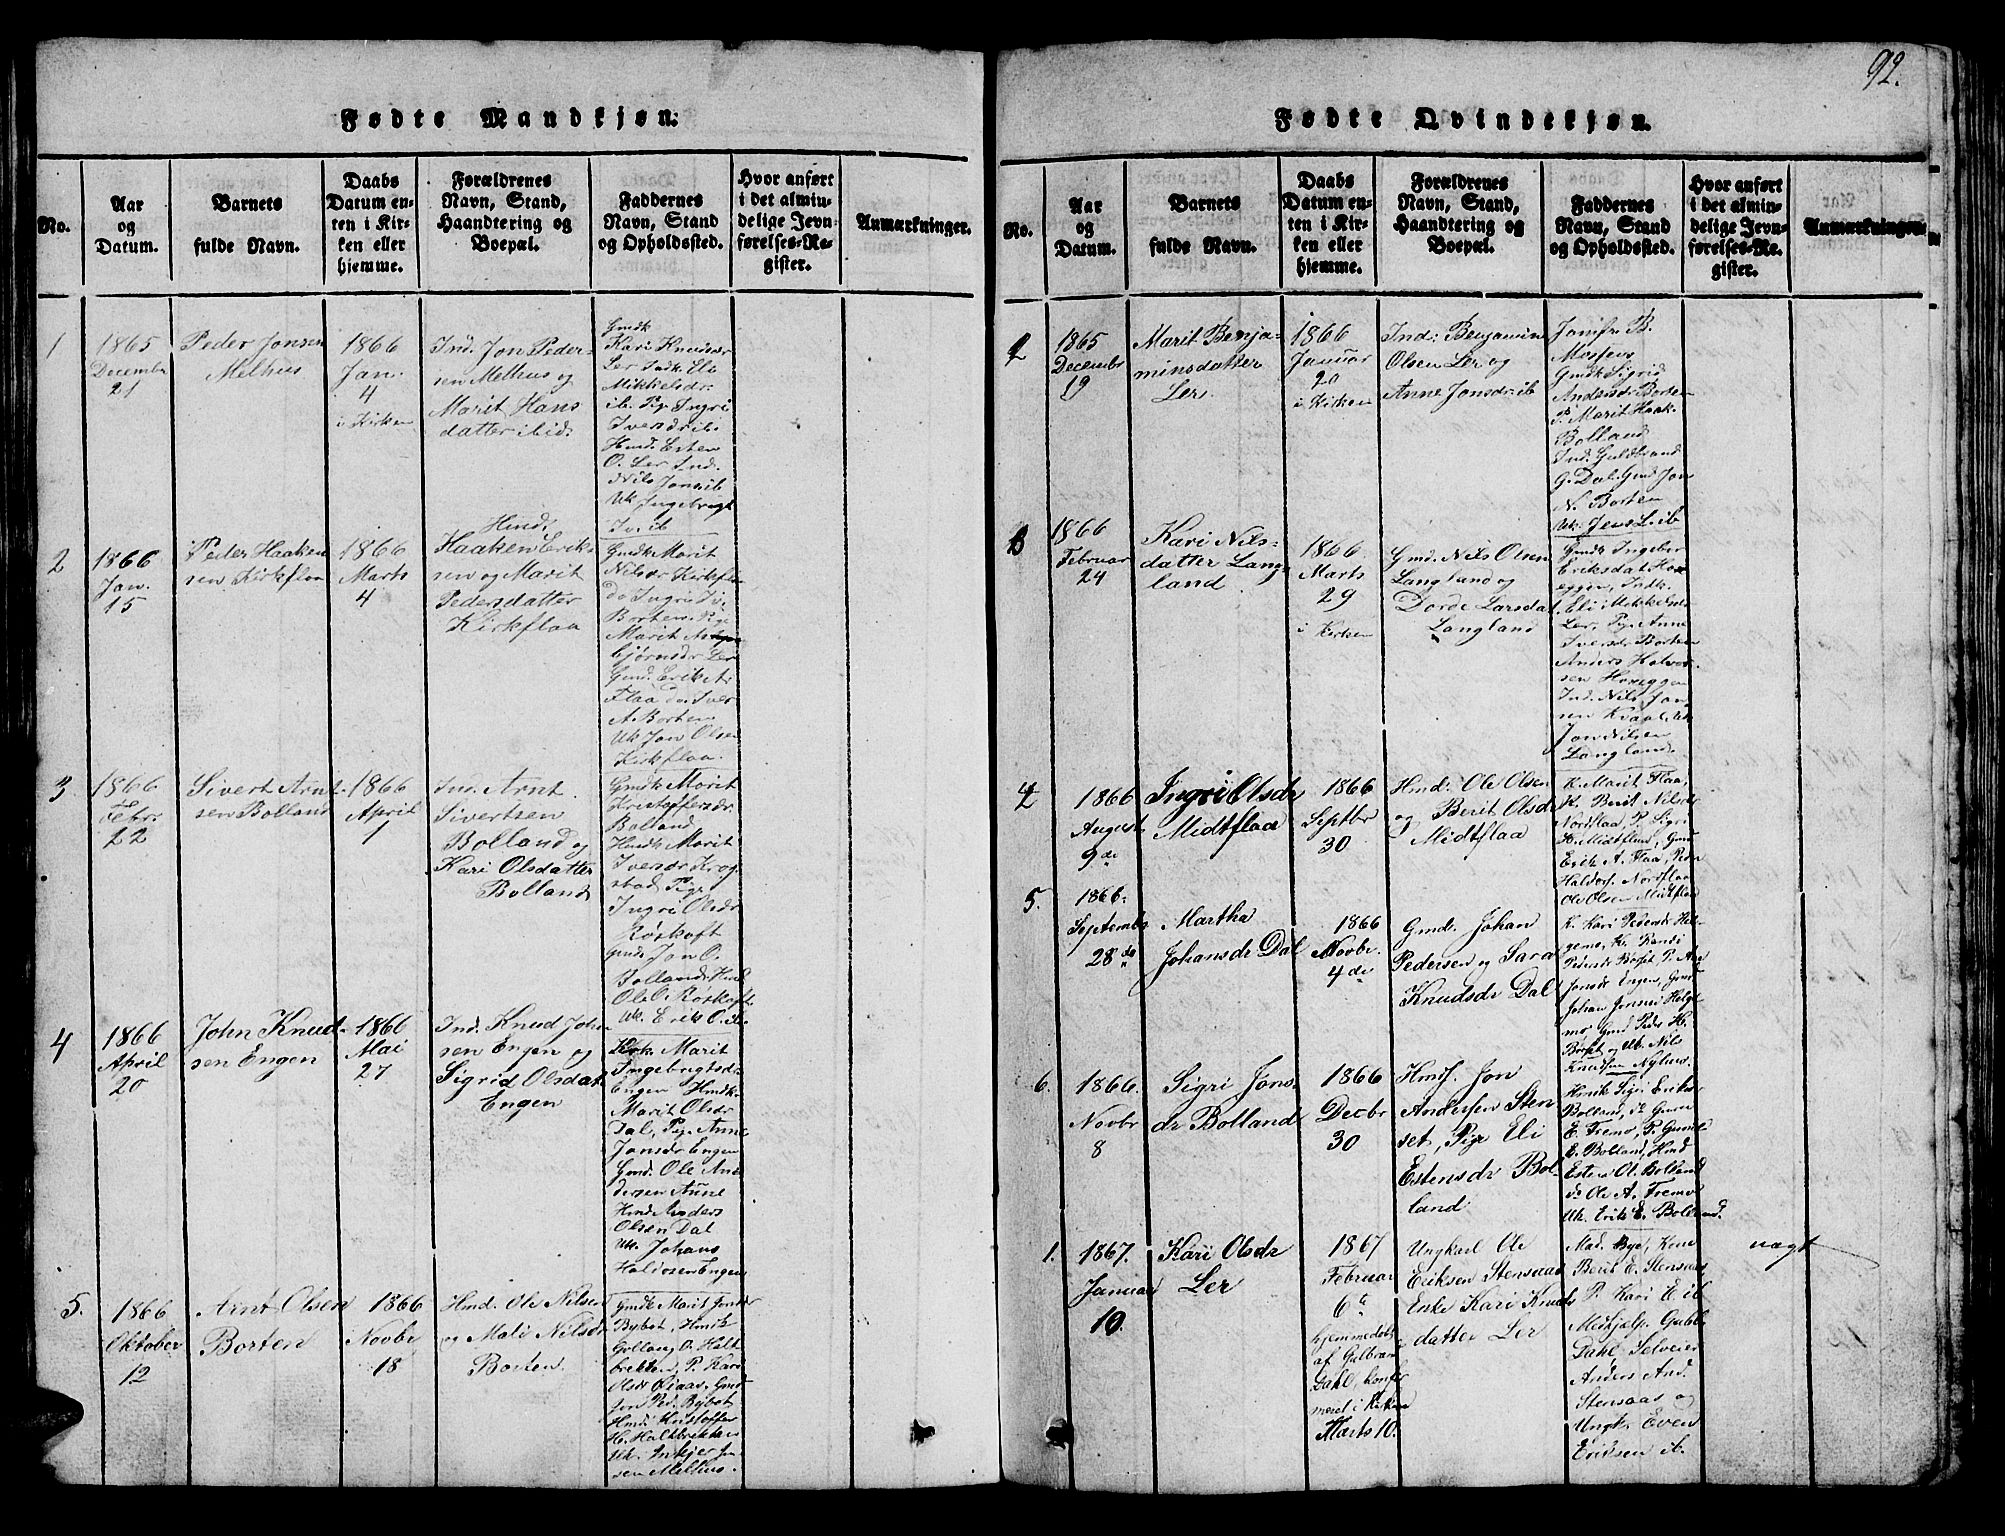 92.
Fødte Mandkjøn.
No.
Aar
og
Datum.
Barnets
fulde Navn.
Daabs
Datum en-
ten i Kir-
ken eller
hjemme.
Forældrenes
Navn, Stand,
Haandtering og
Boepæl.
Faddernes
Navn, Stand
og Opholdssted.
Hvor anført
i det almin-
delige Jevn-
førelses-Re-
gister.
Anmærkninger.
1
1865
Decembr
21
Peder Jonsen
Melhus
1866
Jan.
4
i Kirken
Ind. Jon Peder-
sen Melhus og
Marit Hans
datter ibid.
Gmdk
Kari Knudsdr
Ler Indk. Eli
Mikkelsdr.
ib. Pig. Ingri
Iversdr ib.
Hmd. Esten
O. Ler Ind.
Nils Jons. ib
Uk Ingebrigt
Iv. ib
2
1866
Jan.
15
Peder Haaken
sen Kirkflaa
1866
Marts
4
Hmd.
Haaken Erik-
sen og Marit
Pedersdatter
Kirkflaa
Gmdk Marit
Nilsdr Kirkflaa
do Ingri Iv.
Borten Pig.
Marit
bjørnsdr Ler
Gmd. Erik A.
Flaa do Iver
A. Borten
Uk Jon Olsen
Kirkflaa.
3
1866
Febr.
22
Sivert Arnt-
sen Bolland
1866
April
1
Ind. Arnt
Sivertsen
Bolland og
Kari Olsdatter
Bolland
Gmdk Marit
Kristoffersdr.
Bolland
Hmdk Marit
Iversdr Krog
stad Pige
Ingri Olsdr
Røskoft
Gmd. Jon O.
Bolland Hmd
Ole O Røskoft
Uk. Erik O.
4
1866
April
20
John Knud-
sen Engen
1866
Mai
27
Ind. Knud John
sen Engen og
Sigrid Olsdat
Engen
Marit
Ingebrigtsd.
Engen Hmdk.
Marit Olsdr
Dal, Pig. Anne
Jonsdr Engen
Gmd. Ole An-
dersen Aune
Hmd Anders
Olsen Dal
Uk. Johans
Haldosen Engen
5.
1866
Oktober
12
Arnt Olsen
Borten
1866
Novbr
18
Hmd. Ole Nilsen
og Mali Nilsdr
Borten.
Gmdk Marit Jonsdr
Bybot, Hmk
Gollaug O. Halt
brekken, P. Kari
Olsdr Gjaas, Gmd
Jon Ped. Bybot
Hmd. Kristoffer
H. Haltbrekken
Uk. Inkjer Jen
sen Melhus.
Fødte Qvindekjøn.
No.
Aar
og
Datum.
Barnets
fulde Navn.
Daabs
Datum en-
ten i Kir-
ken eller
hjemme.
Forældrenes
Navn, Stand,
Haandtering og
Boepæl.
Faddernes
Navn, Stand
og Opholdssted.
Hvor anført
i det almin-
delige Jevn-
førelses-Re-
gister.
Anmærkninger.
2
1865
Decembr
19
Marit Benja-
minsdatter
Ler.
1866
Januar
20
i Kirken
Ind. Benjamin
Olsen Ler og
Anne Jonsdr. ib
Jomfr. B.
Mosfens
Gmdk Sigrid
Andersdr. Borten
P. Marit Haak.
Bolland
Ind. Guldbrand
G. Dal. Gmd Jon
N. Borten
Uk. Jens L. ib
3
1866
Februar
24
Kari Nils-
datter Lang-
land
1866
Marts
29
i Kirken
Gmd. Nils Olsen
Langland og
Dorde Larsdat
Langland
Gmdk Ingeber
Eriksdat Hov
eggen, Indk.
Eli Mikkelsdr
Ler, Pig. Anne
Iversdr Borten
Anders Halvor
sen Hoveggen
Ind. Nils Jon
sen Kvaal. Uk
Jon Nilsen
Langland.
4
1866
August
9de
Ingri Olsdr
Midtflaa
1866
Septbr
30
Hmd. Ole Olsen
og Berit Olsdr
Midtflaa
K. Marit Flaa,
K. Berit Nilsdr
Nordflaa, P. Sigri
H. Midtflaa, Gmd
Erik A. Flaa, Peder
Haldors. Nordflaa
Ole Olsen Midtflaa
5.
1866.
Septembr
28de
Martha
Johansdr Dal
1866
Novbr.
4de
Gmd. Johan
Pedersen og Sara
Knudsdr Dal
K. Kari Pedersdr Hel-
geme, K. Randi
Pedersdr Borset P. Ane
Jonsdr Engen, Gmd
Johan Jonsen Helge
mo Gmd Peder H.
Borset og Uk. Nils
Knudsen Nyhus.
6.
1866.
Novbr
8
Sigri Jons-
dr Bolland
1866
Decbr
30
Hmss. Jon
Andersen Sten
set, Pige Eli
Estensdr Bol-
land
Hmk Sigri Eriksdr
Bolland, do Guru
E. Fremo, P. Gunild
E. Bolland, Hmd
Esten Ol. Bolland
do Ole A. Fremo
Uk. Erik E. Bolland.
1.
1867.
Januar
10.
Kari Olsdr
Ler
1867
Februar
6te
hjemmedøbt
af Gulbran
Dahl, konfir
meret i Kirken
Marts 10.
Ungkarl Ole
Eriksen Stensaas
Enke Kari Knuds
datter Ler
Mad. Bye, Kone
Berit E. Stensaas
P. Kari E. ib
Medhjelp. Gulbr.
Dahl Selveier
Anders And.
Stensaas og
Ungk. Even
Eriksen ib.
uægt